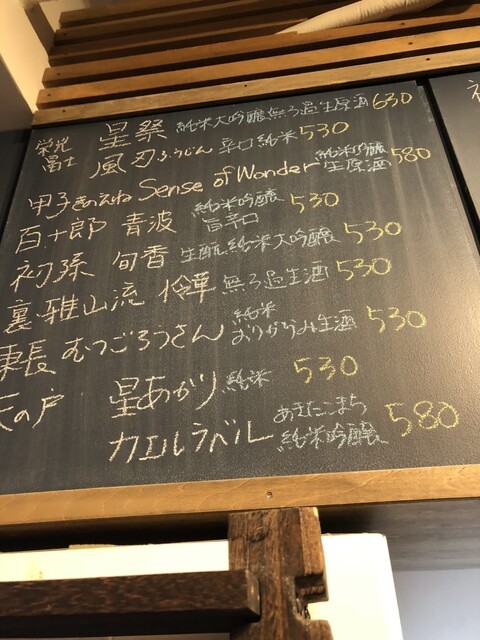 栄光冨士 星祭 純米大吟醸無ろ過生原酒 630
風刃 ふうじん 辛口純米 530
甲子 きのえね Sense of Wonder 純米吟醸生原酒 580
百十郎 青波 純米吟醸旨辛口 530
初孫 旬香 生酛純米大吟醸 530
裏・雅山流 伶華 無ろ過生酒 530
東長 むつごろうさん 純米おりがらみ生酒 530
天の戸 星あかり 純米 530
カエルラベル あきたこまち純米吟醸 580